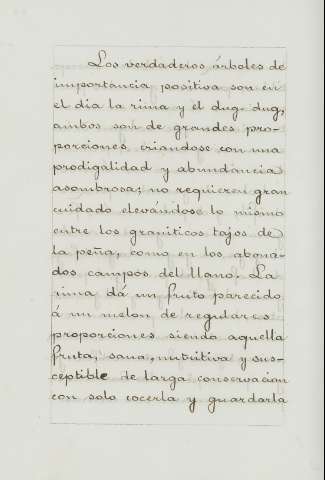 Los verdaderos árboles de
importancia positiva son en
el dia la rima y el dug-dug,
ambos son de grandes pro-
porciones, criandose con una
prodigalidad y abundancia
asombrosa; no requieren gran
cuidado elevándose lo mismo
entre los graniticos tajos de
la peña, como en los abona-
dos campos del llano. La
rima dá un fruto parecido
á un melon de regulares
proporciones siendo aquella
fruta, sana, nutritiva y sus-
ceptible de larga conservacion
con solo cocerla y guardarla